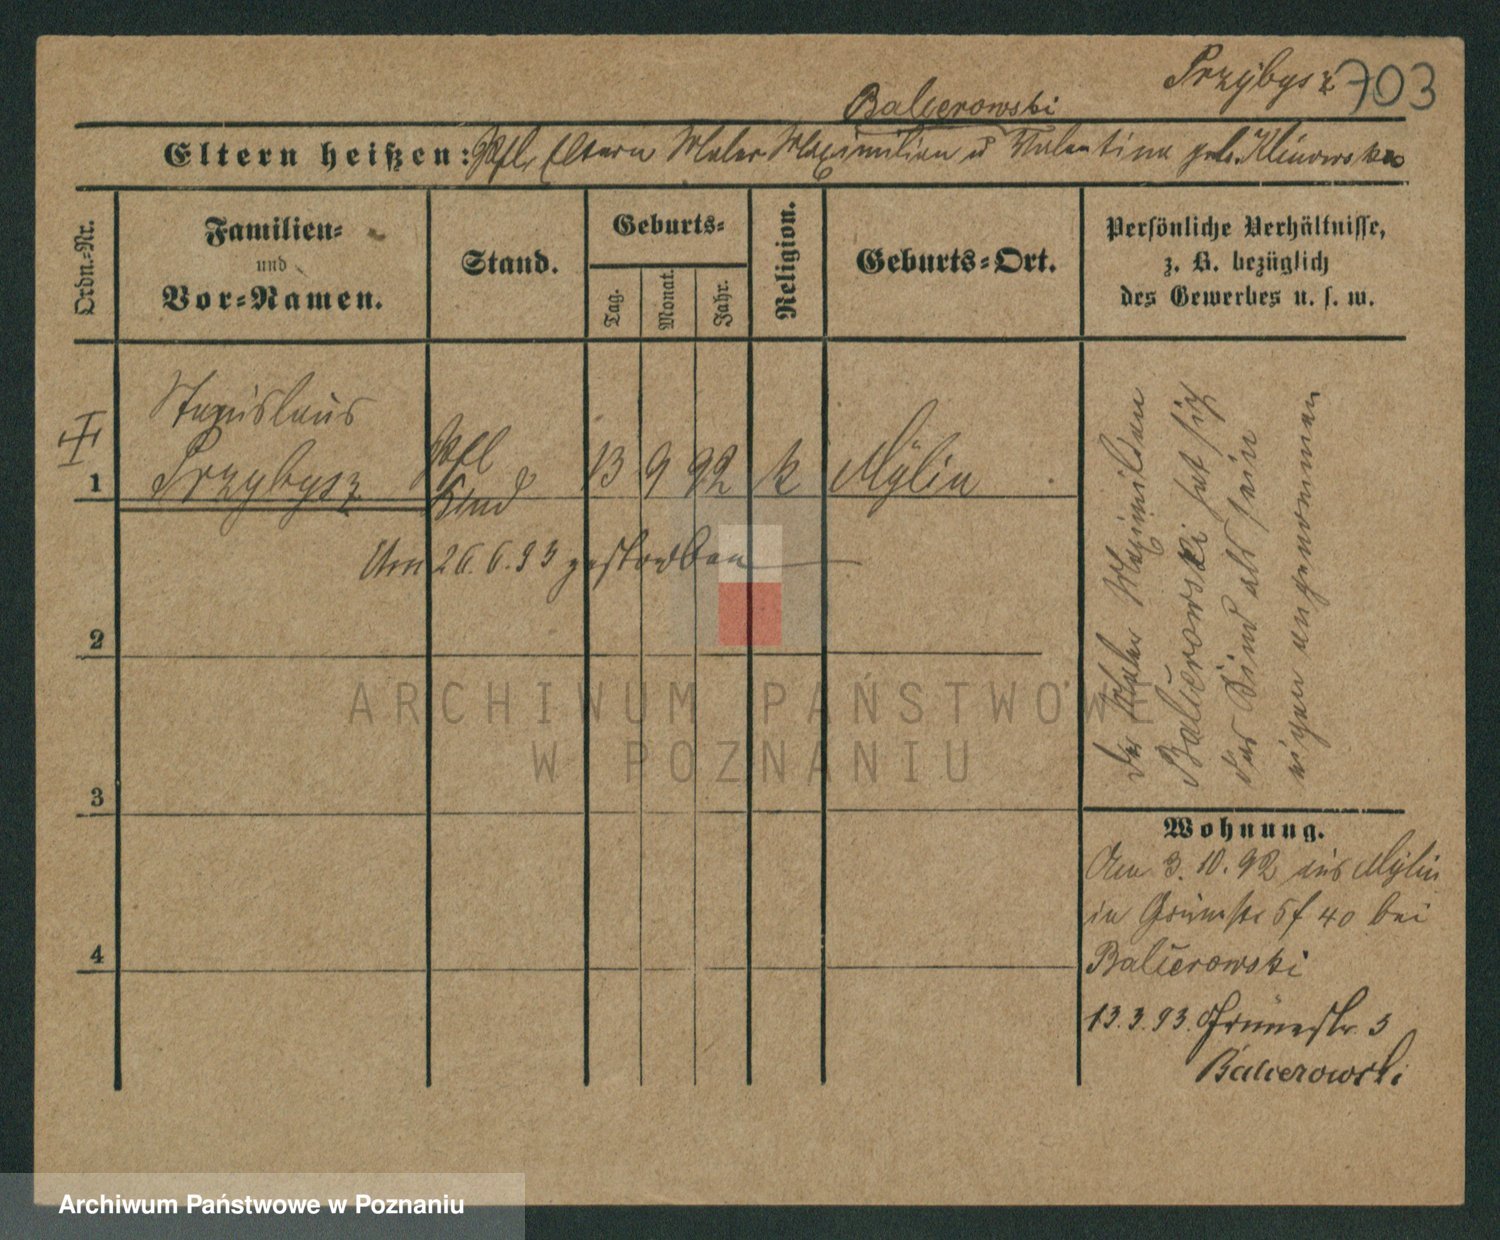 Przybysz 703
Balcerowski
Eltern heißen: Pfl. Eltern Maler Maximilian u Valentina geb. Klinowska
Ordn.-Nr.
Familien-
und
Vor-Namen.
Stand.
Geburts-
Tag.
Monat.
Jahr.
Religion.
Geburts-Ort.
Persönliche Verhältnisse,
z. B. bezüglich
des Gewerbes u. s. w.
Stanislaus
1 Przybysz Pfl Kind 13 9 92 k Mÿlin
Am 26.6.93 gestorben
2
3
4
der Maler Maximilian
Balcerowski hat sich
das Kind als sein
eigen angenommen
Wohnung.
Am 3.10.92 aus Mÿlin
in Grünestr 5 f 40 bei
Balcerowski
13.3.93. Grünestr. 3
Balcerowski
ARCHIWUM PAŃSTWOWE
W POZNANIU
Archiwum Państwowe w Poznaniu